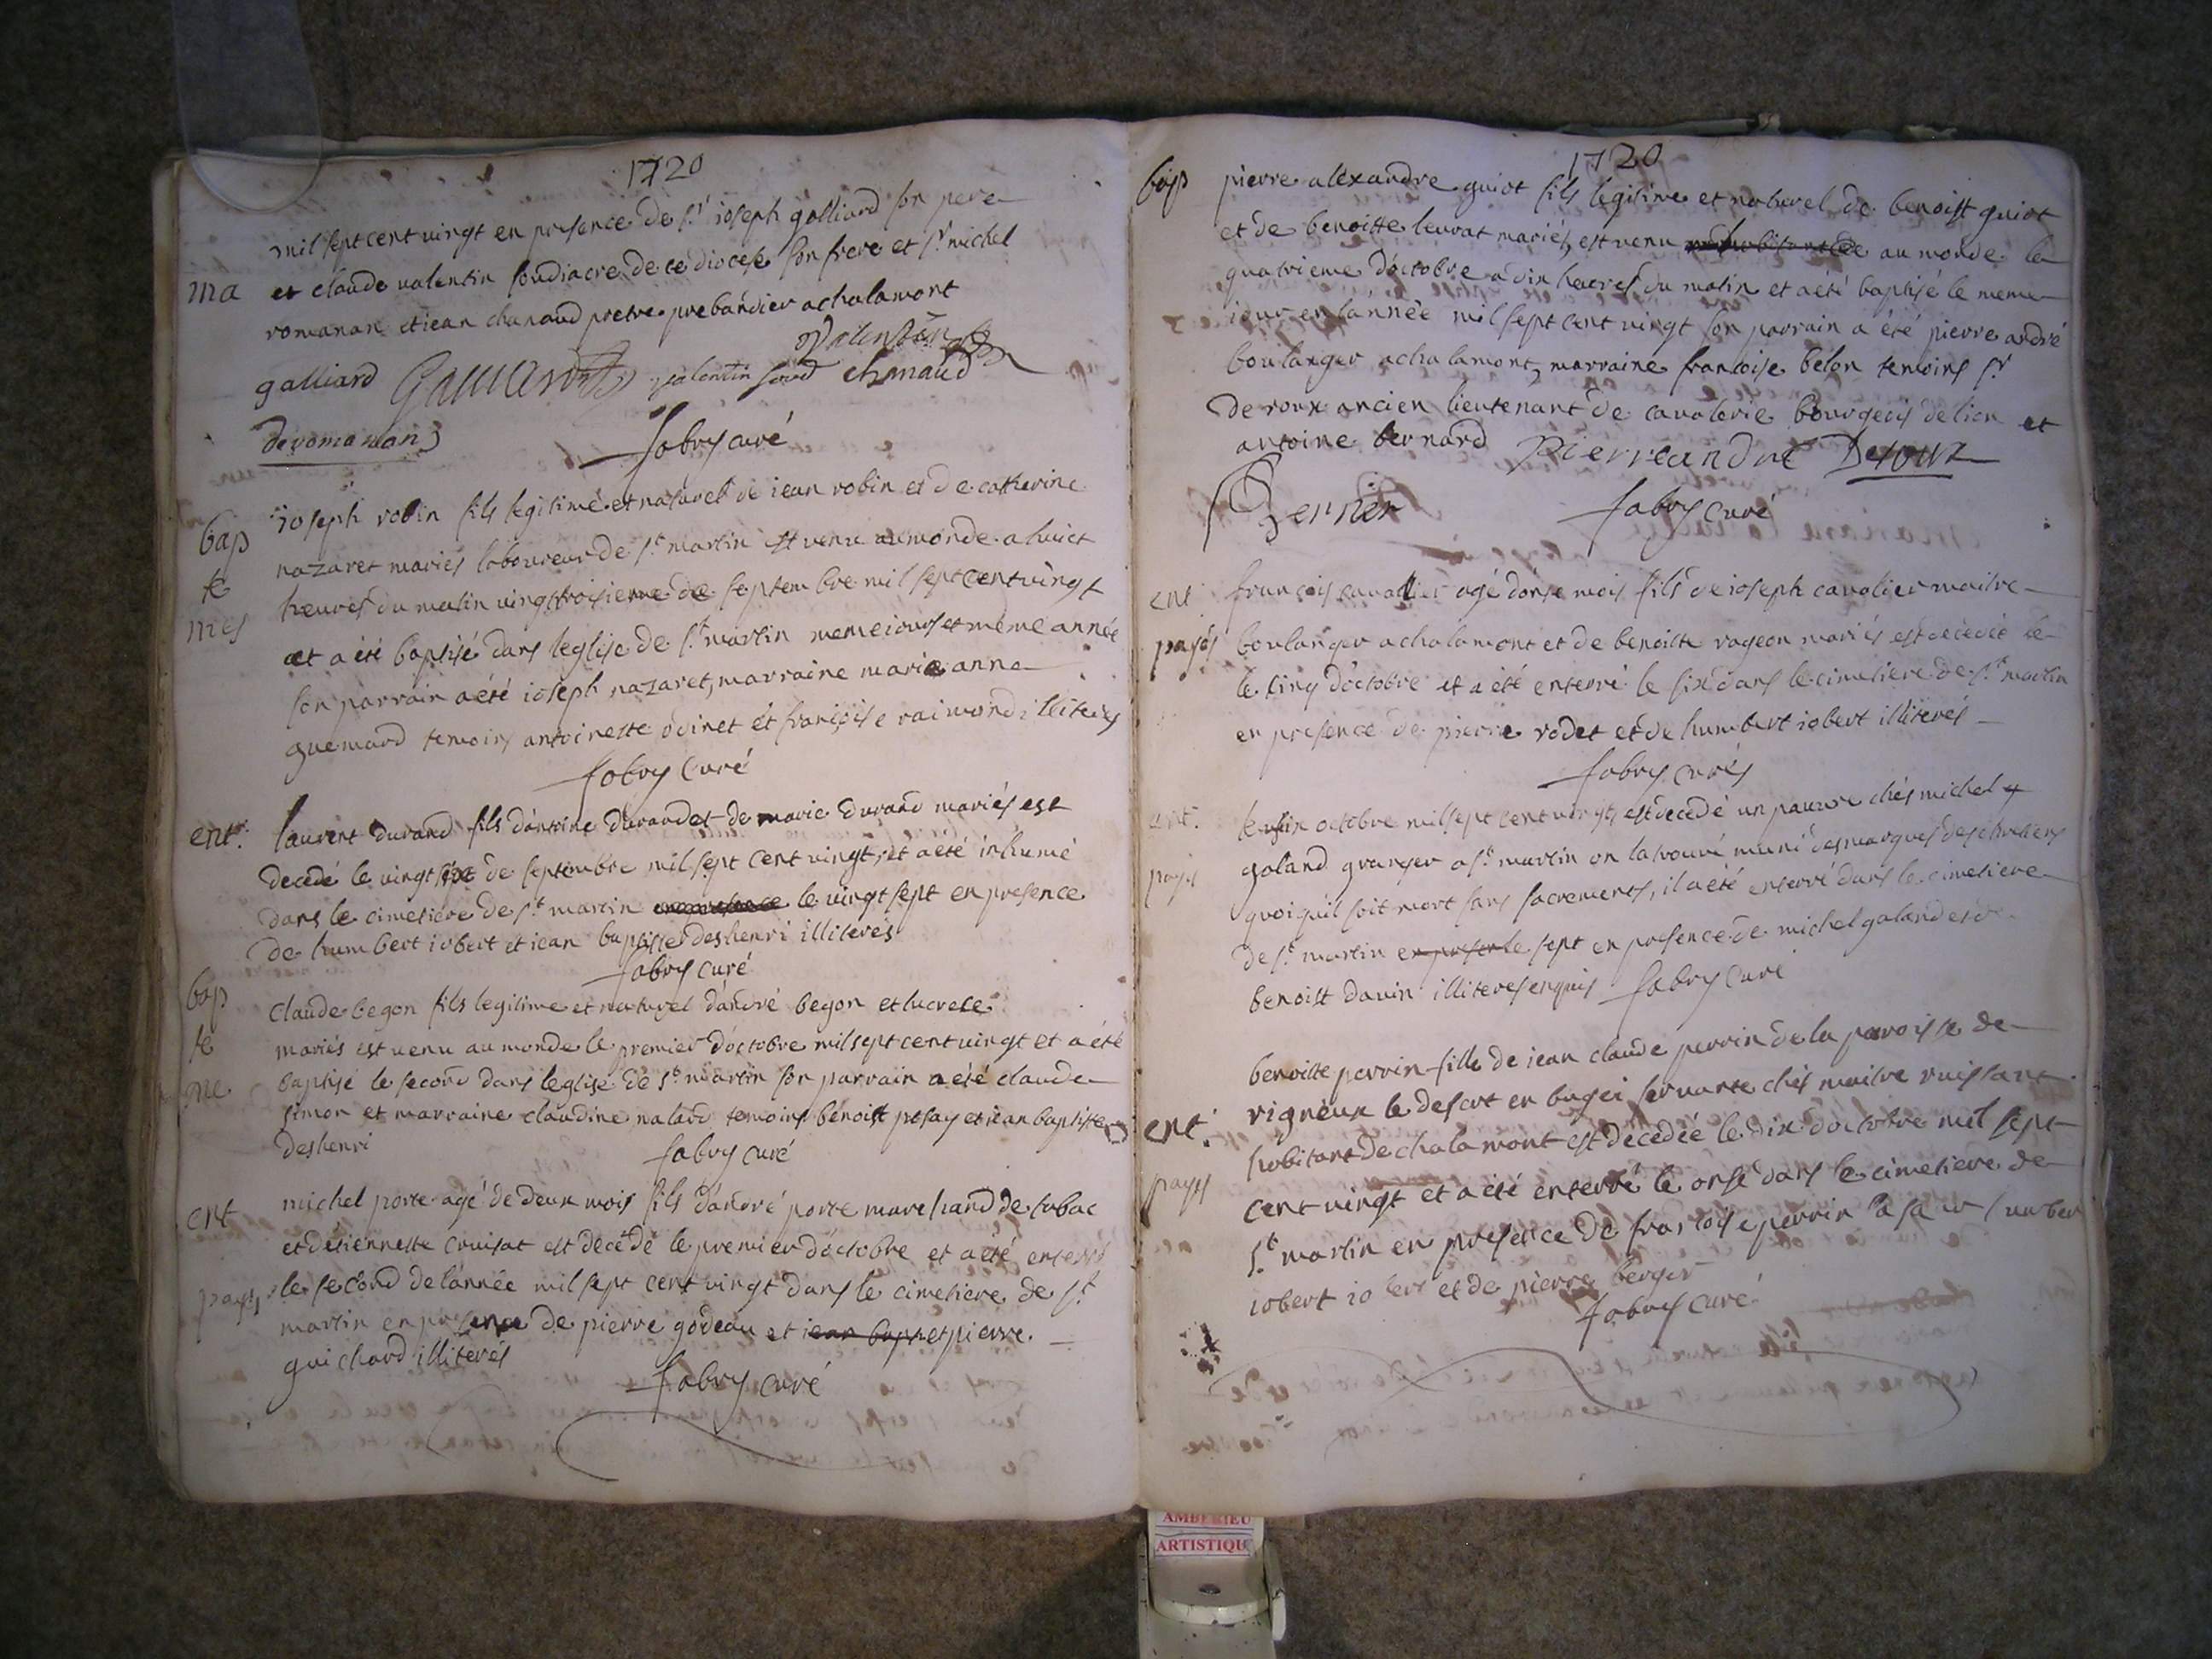 1720
mil sept cent vingt en presence de sr ioseph galliard son pere
ma
et claude valentin soudiacre de ce diocese son frere et sr michel
romanan et iean chanaud pretre prebandier a chalamont
Valentin
galliard Galliard valentin soud chanaud
deromanans fabry curé
bap
te
mes
ioseph robin fils legitime et naturel de iean robin et de catherine
nazaret mariés laboureur de st martin est venu au monde a huict
heures du matin vingt troisieme de septembre mil sept cent vingt
et a été baptisé dans leglise de st martin meme iour et même année
son parrain a été ioseph nazaret, marraine marie anne
guemard temoins antoinette ovinet et françoise raimond illiteres
fabry curé
ent.
laurent durand fils dantoine durand et de marie durand mariés est
decedé le vingt six de septembre mil sept cent vingt, et a été inhumé
dans le cimetiere de st martin en presence le vingt sept en presence
de humbert iobert et iean baptiste deshenri illiterés
fabry curé
bap
te
me
claude begon fils legitime et naturel dandré begon et lucrece
mariés est venu au monde le premier doctobre mil sept cent vingt et a été
baptisé le second dans leglise de st martin son parrain a été claude
simon et marraine claudine nalard temoins benoist pesay et iean baptiste
deshenri fabry curé
ent
michel porte agé de deux mois fils dandré porte marchand de tabac
et detiennette cruisat est decedé le premier doctobre et a été enterré
payés le second de lannée mil sept cent vingt dans le cimetiere de st
martin en presence de pierre godeau et iean bap et pierre
guichard illiterés
fabry curé
1720
bap pierre alexandre guiot fils legitime et naturel de benoist guiot
et de benoitte leurat mariés, est venu au monde le
quatrieme doctobre a dix heures du matin et a été baptisé le meme
iour en lannée mil sept cent vingt son parrain a été pierre andré
boulanger a chalamont, marraine francoise belon temoins sr
de roux ancien lieutenant de cavalerie bourgeois de lion et
antoine bernard Pierreandré Deroux
fabry curé
ent francois cavallier agé donse mois fils de ioseph cavalier maitre
payés boulanger a chalamont et de benoitte rageon mariés est decedé le
le cinq doctobre et a été enterré le six dans le cimetiere de st martin
en presence de pierre rodet et de humbert iobert illiterés
fabry curés
ent. le six octobre mil sept cent vingt, est decedé un pauvre chés michel
payés galand granger a st martin on la trouvé muni des marques des chretiens
quoiquil soit mort sans sacrements, il a été enterré dans le cimetiere
de st martin en presen le sept en presence de michel galand et de
benoist davin illiteres enquis fabry curé
benoitte perrin fille de iean claude perrin de la paroisse de
rigneux le desert en bugei servante chés maitre ruissant
ent. habitant de chalamont est decedée le dix doctobre mil sept
payés cent vingt et a été enterré le onse dans le cimetiere de
st martin en presence de francoise perrin sa sœur
iobert et de pierre berger
fabry curé
AMBERIEU
ARTISTIQU